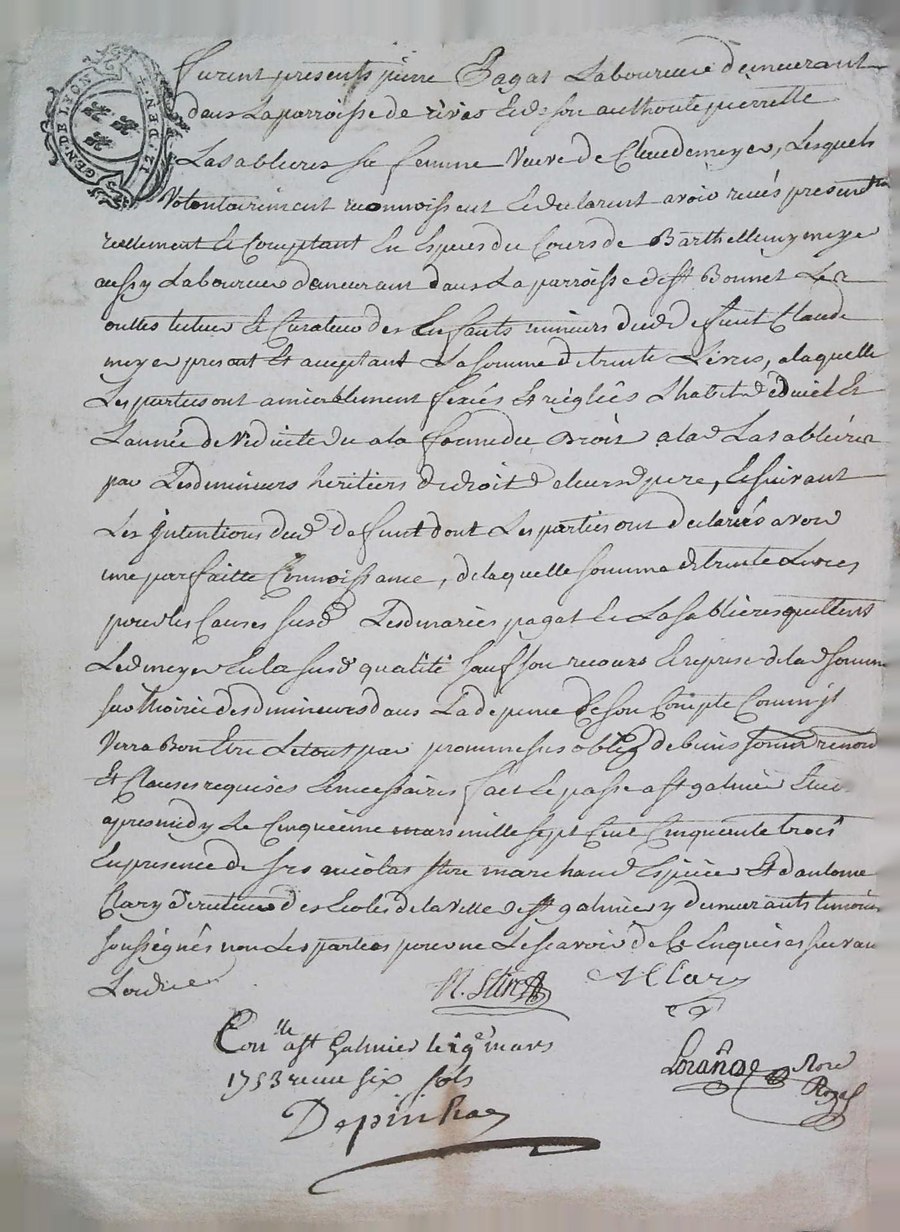 GEN. DE LYON
furent presents pierre Pagat Laboureur demeurant
dans La parroisse de rivas Et de son authorité pierrette
Lasablieres sa femme Veuve de Claude meyer, Lesquels
Volontairement reconnoissent Et declarent avoir reçus
reellement Et Comptant En Especes du Cours de Barthellemy meyer
aussy Laboureur demeurant dans La parroisse de st Bonnet Les
oulles tuteur Et Curateur des Enfants mineurs dud defunt Claude
meyer present Et acceptant La somme de trente Livres, a laquelle
Les parties ont amiablement fixés Et réglés L'habit de dueil Et
L'année de Viduité du a la forme du Droit a lad Lasablieres
par Lesd mineurs heritiers de droit de leurd pere, Et suivant
Les Intentions dud defunt dont Les parties ont declarés avoir
une parfaitte Connoissance, de laquelle somme de trente Livres
pour les Causes susd Lesd mariés pagat Et Lasablières quittent
Led meyer En la susd qualité sauf son recours Et reprise de lad somme
sur desd mineurs dans La depense de son Compte Comm'jl
Verra Bon Etre Le tout par prommesses de biens
Et Clauses requises Et necessaires fait Et passé a st galmier
apres midy Le Cinquieme mars mille sept Cent Cinquante trois
En presence de nicolas marchand Epicier Et d'antoine
Clary des Ecoles de la Ville de st galmier y demeurants temoins
soussignés non Les parties pour ne Le scavoir de Ce Enquises suivant
L'ordce
A Clary
Con.lle a st Galmier le 19e mars
1753 reçu six sols
Depinhac
Lorange Nore
Royal